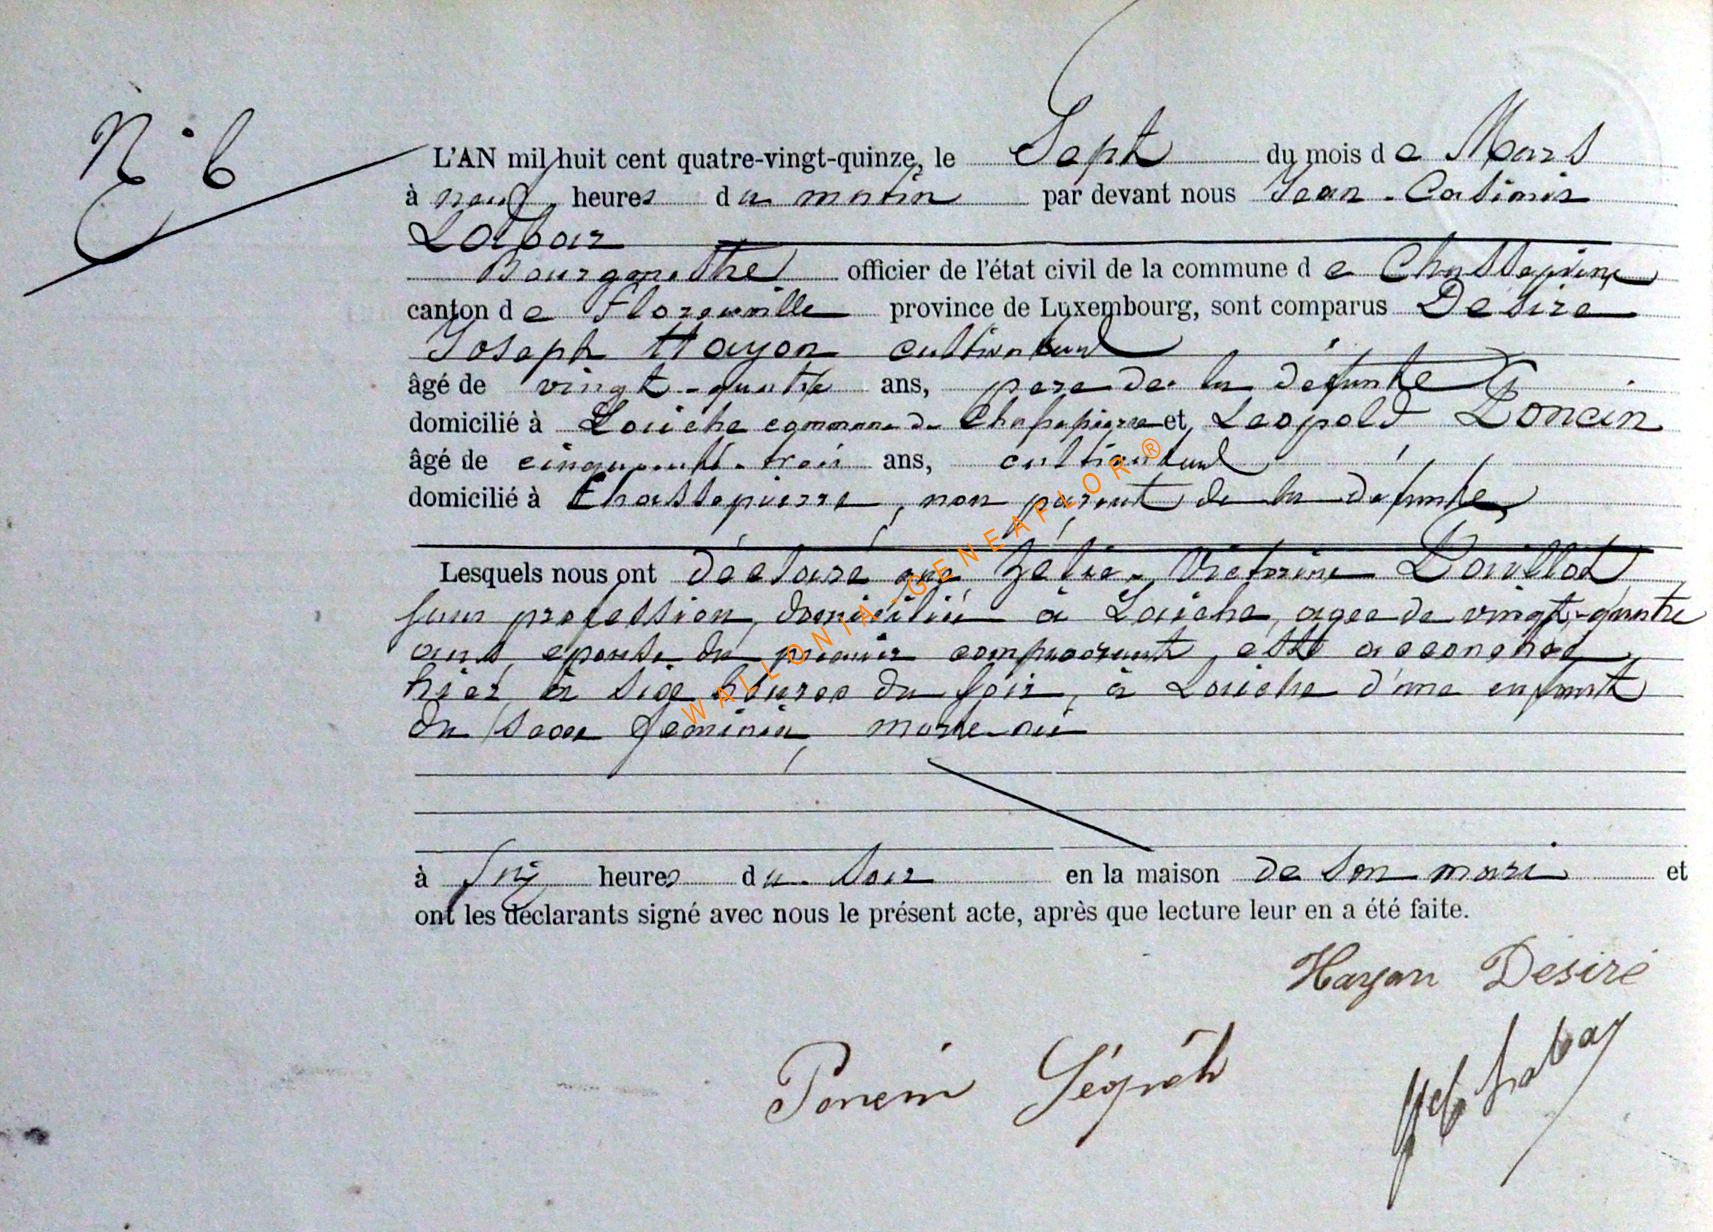 N° 6
L'AN mil huit cent quatre-vingt-quinze, le Sept du mois de Mars
à neuf heures du matin par devant nous Jean-Casimir
Labbar
Bourgmestre officier de l'état civil de la commune de Chassepierre
canton de Florenville province de Luxembourg, sont comparus Désiré
Joseph Hayon cultivateur
âgé de vingt-quatre ans, père de la défunte
domicilié à Laiche commune de Chassepierre et Léopold Poncin
âgé de cinquante-trois ans, cultivateur
domicilié à Chassepierre, non parent de la défunte
Lesquels nous ont déclaré que Zélie-Victorine
sans profession, domiciliée à Laiche, agée de vingt-quatre
ans, épouse du premier comparant, est accouchée
hier, à six heures du soir, à Laiche d'une enfant
du sexe féminin, mort-né
à six heures du soir en la maison de son mari et
ont les déclarants signé avec nous le présent acte, après que lecture leur en a été faite.
Hayon Désiré
Poncin
WALLONIA-GENEAFLOR®